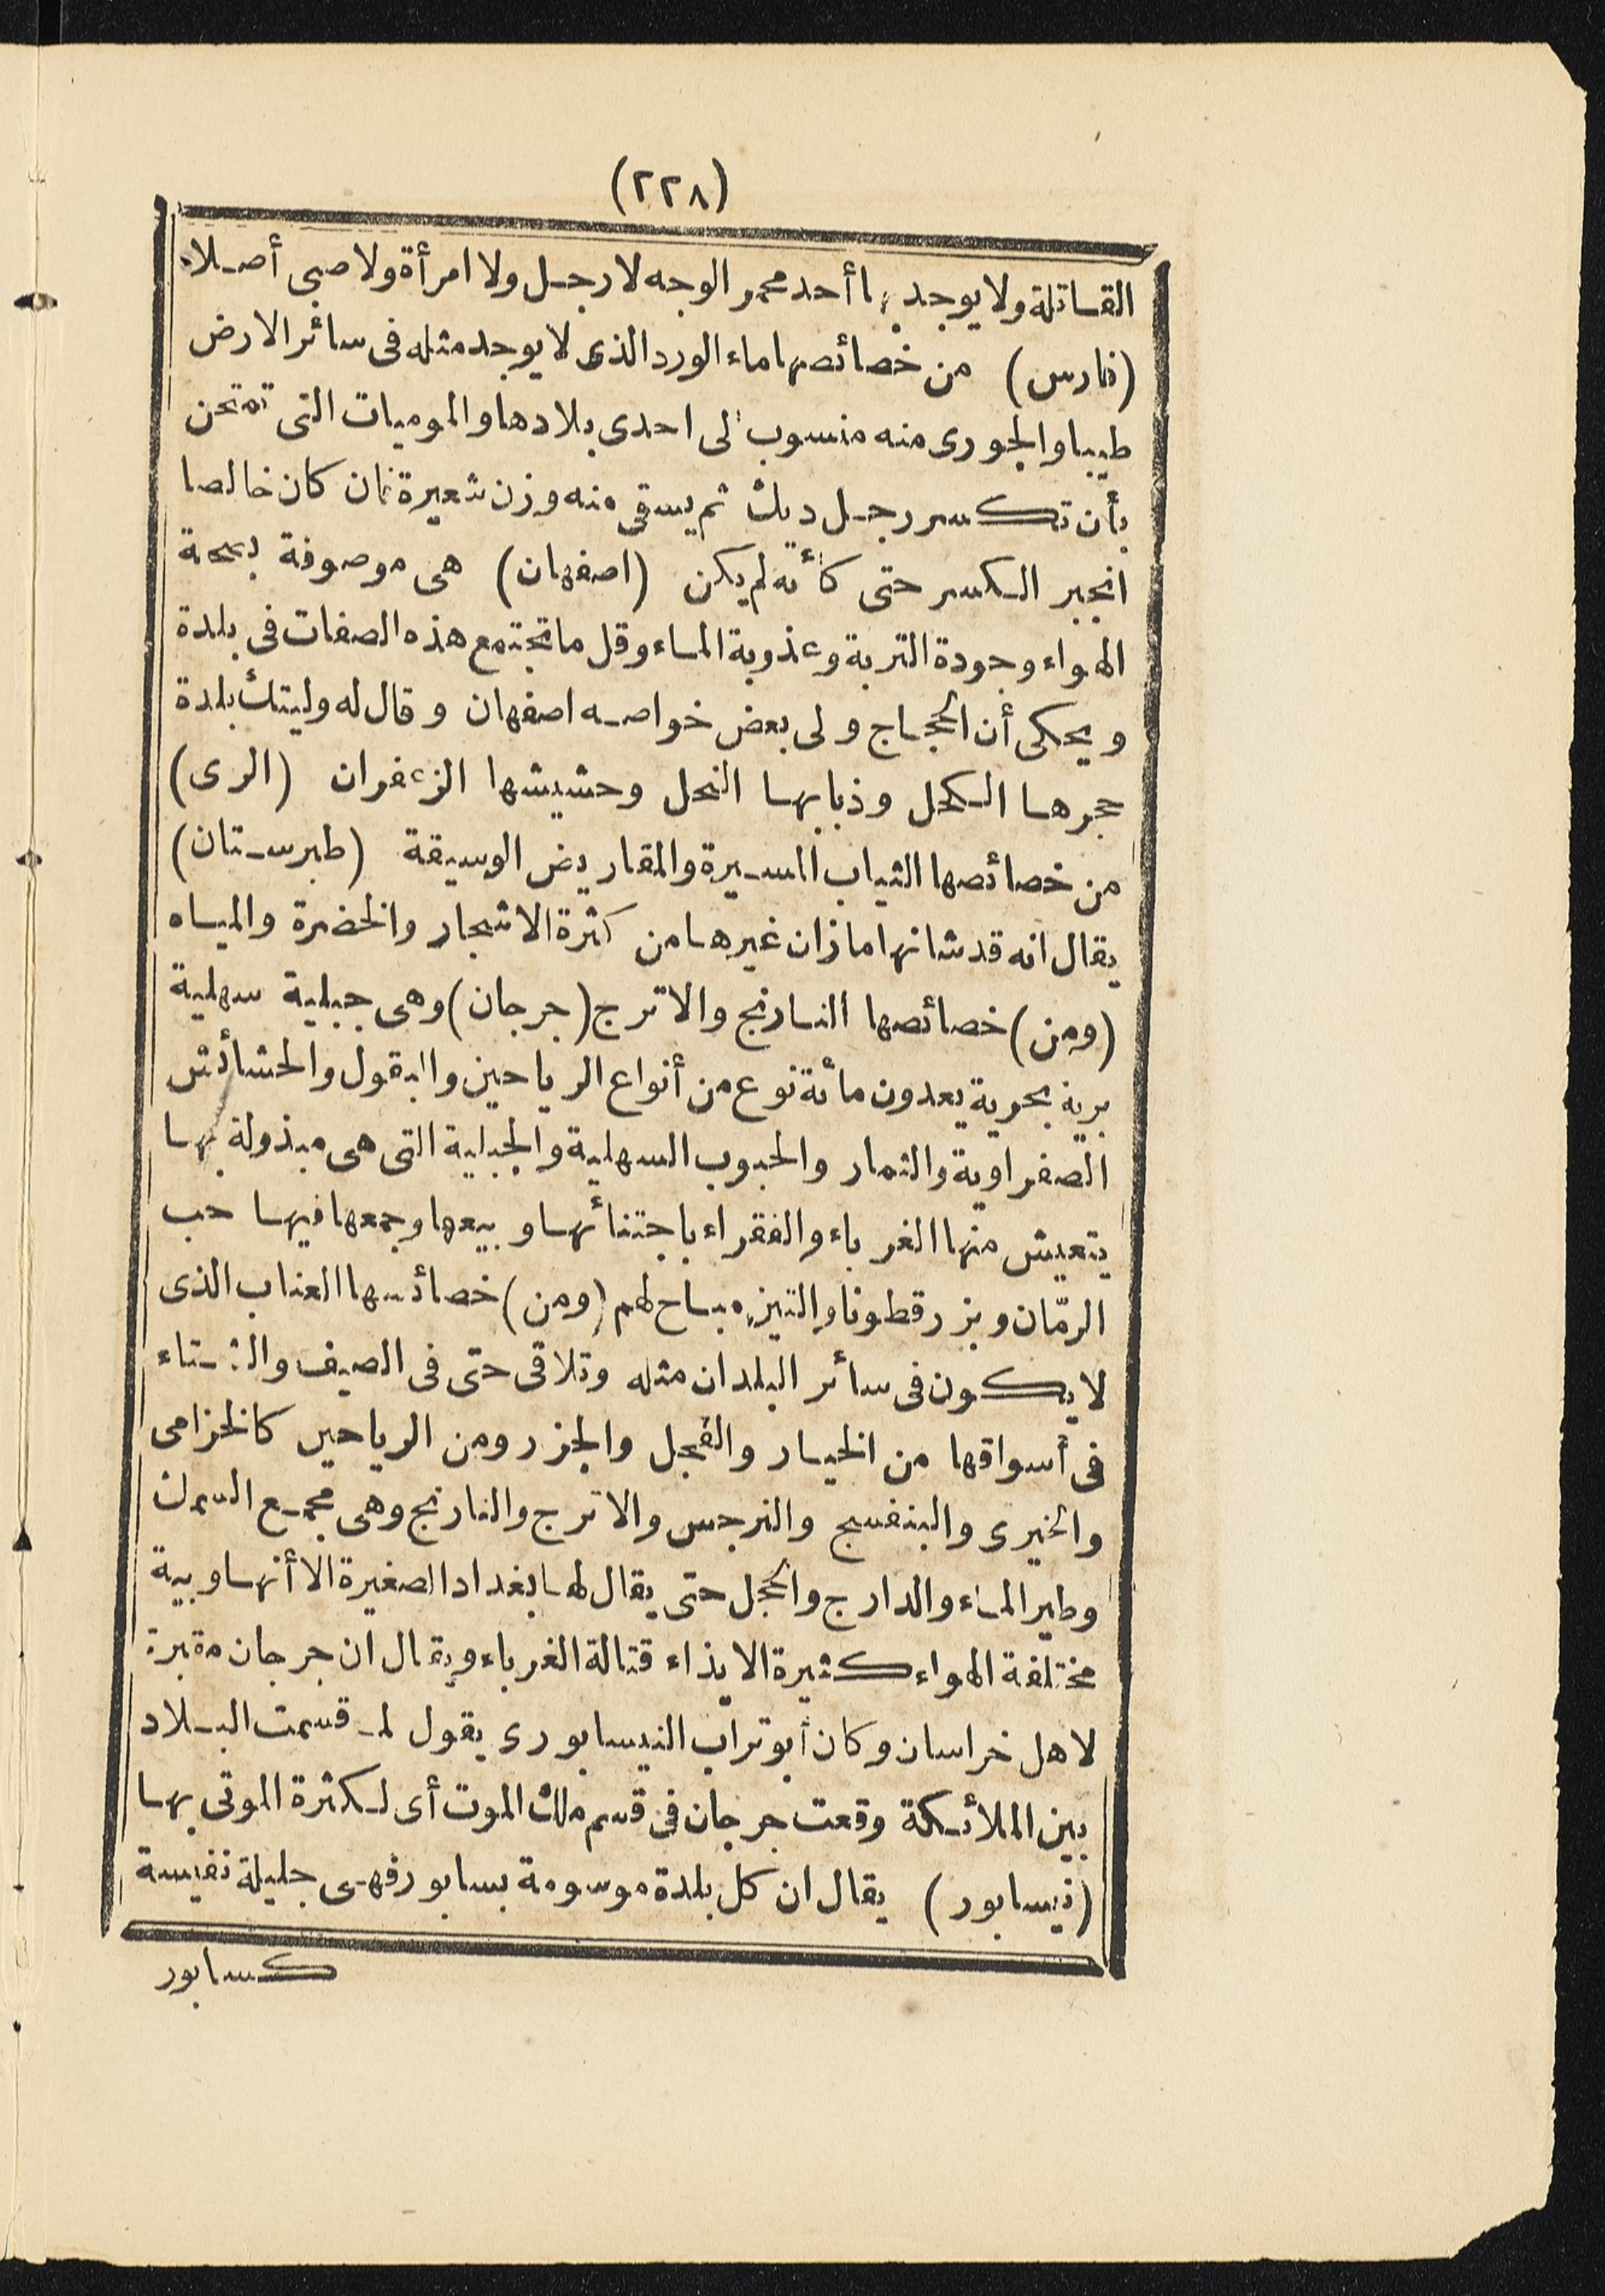 (٢٢٨)
القاتلة ولا يوجد بها أحد محمر الوجه لا رجل ولا امرأة ولا صبى أصلا
(فارس) من خصائصها ماء الورد الذى لا يوجد مثله فى سائر الارض
طيبا والجورى منه منسوب الى احدى بلادها والموميات التى تمتحن
بأن تكسر رجل ديك ثم يسقى منه وزن شعيرة فان كان خالصا
انجبر الكسر حتى كأنه لم يكن (اصفهان) هى موصوفة بصحة
الهواء وجودة التربة وعذوبة الماء وقل ما تجتمع هذه الصفات فى بلدة
ويحكى أن الحجاج ولى بعض خواصه اصفهان وقال له وليتك بلدة
حجرها الكحل وذبابها النحل وحشيشها الزعفران (الرى)
من خصائصها الثياب السيرة والمقاريض الوسيقة (طبرستان)
يقال انه قد شانها ما زان غيرها من كثرة الاشجار والخضرة والمياه
(ومن) خصائصها النارنج والاترج (جرجان) وهى جبلية سهلية
برية بحرية يعدون مائة نوع من أنواع الرياحين والبقول والحشائش
الصفراوية والثمار والحبوب السهلية والجبلية التى هى مبذولة بها
يتعيش منها الغرباء والفقراء باجتنائها وبيعها وجمعها فيها حب
الرمّان وبزر قطونا والتين مباح لهم (ومن) خصائصها العناب الذى
لا يكون فى سائر البلدان مثله وتلاقى حتى فى الصيف والشتاء
فى أسواقها من الخيار والفجل والجزر ومن الرياحين كالخزامى
والخيرى والبنفسج والنرجس والاترج والنارنج وهى مجمع السمك
وطير الماء والدارج والحجل حتى يقال لها بغداد الصغيرة الا أنها وبية
مختلفة الهواء كثيرة الايذاء قتالة الغرباء ويقال ان جرجان مقبرة
لاهل خراسان وكان أبو تراب النيسابورى يقول لما قسمت البلاد
بين الملائكة وقعت جرجان فى قسم ملك الموت أى لكثرة الموتى بها
(نيسابور) يقال ان كل بلدة موسومة بسابور فهى جليلة نفيسة
كسابور